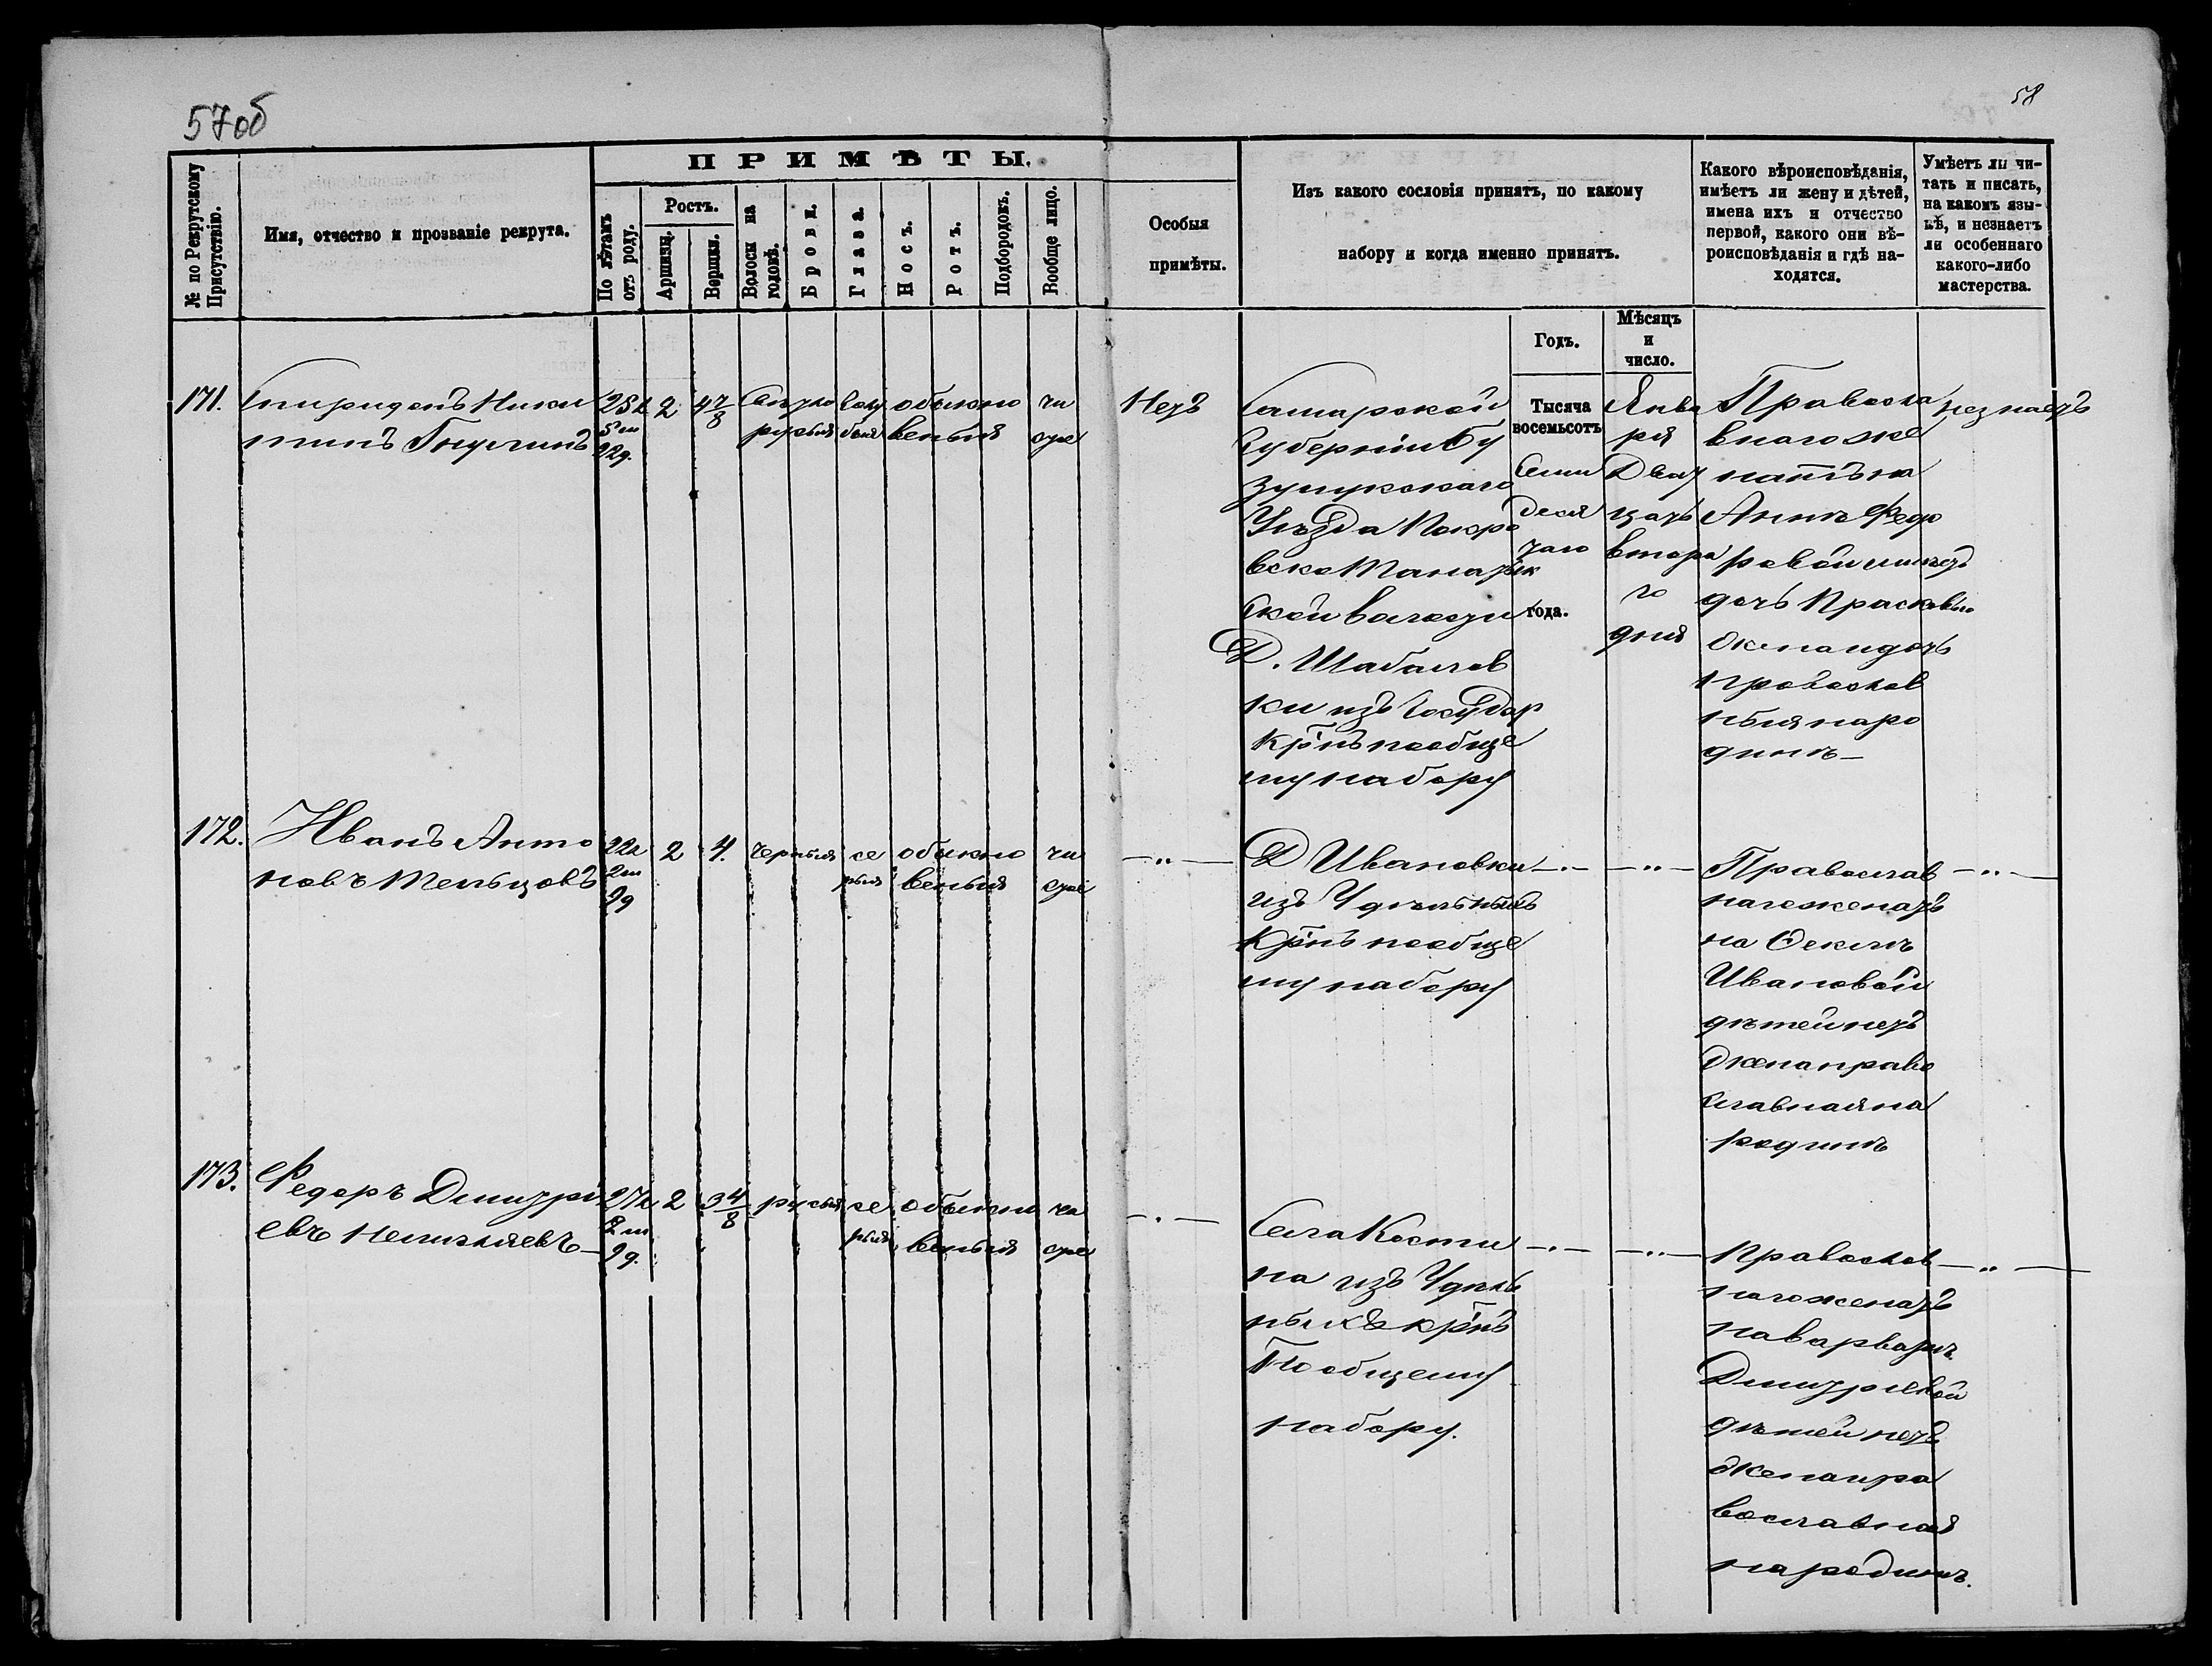 57об
58
№ по Рекрутскому Присутствію.
Имя, отчество и прозваніе рекрута.
ПРИМѢТЫ.
По лѣтамъ отъ роду.
Ростъ.
Аршинъ.
Вершки.
Волоси на головѣ.
Брови.
Глаза.
Носъ.
Ротъ.
Подбородокъ.
Вообще лицо.
Особыя
примѣты.
Изъ какого сословія принятъ, по какому
набору и когда именно принятъ.
Какого вѣроисповѣданія,
имѣетъ ли жену и дѣтей,
имена ихъ и отчество
первой, какого они вѣ-
роисповѣданія и гдѣ на-
ходятся.
Умѣетъ ли чи-
тать и писать,
на какомъ язы-
кѣ, и незнаетъ
ли особеннаго
какого-либо
мастерства.
Годъ.
Мѣсяцъ
и
число.
171.
Спиридонъ Ники
тинъ
5 м
22 д.
2
4 7/8
русыя
голу
бые
обыкно
венныя
чи
стое
Нетъ
Самарской
Губерніи Бу
зулукскаго
Уѣзда Покро
вско Таналык
ской волости
Д.
ки изъ Государ
крнъ пообще
му набору
Тысяча
восемьсотъ
семи
деся
таго
года.
Янва
ря
Двад
цать
второ
го
дня
Правосла
внаго же
натъ на
Аннѣ Федо
ровой имеетъ
дочь Прасковью
жена и дочь
православ
ныя наро
динѣ
незнаетъ
172.
Иванъ Анто
новъ
22 л
2 м
9 д
2
4.
черныя
се
рыя
обыкно
венныя
чи
стое
Д Ивановки
изъ Удѣльныхъ
Крнъ пообще
му набору
Православ
наго женатъ
на Феклѣ
Ивановой
дѣтей нетъ
жена право
славная на
родинѣ
173.
Федоръ Дмитрі
евъ
27 л
2 м
9 д.
2
3 4/8
русыя
се
рыя
обыкно
венныя
чи
стое
Села Кости
на изъ Удѣль
ныхъ крнъ
По общему
набору.
Православ
наго женатъ
на Варварѣ
Дмитріевой
дѣтей нетъ
жена пра
вославная
на родинѣ.